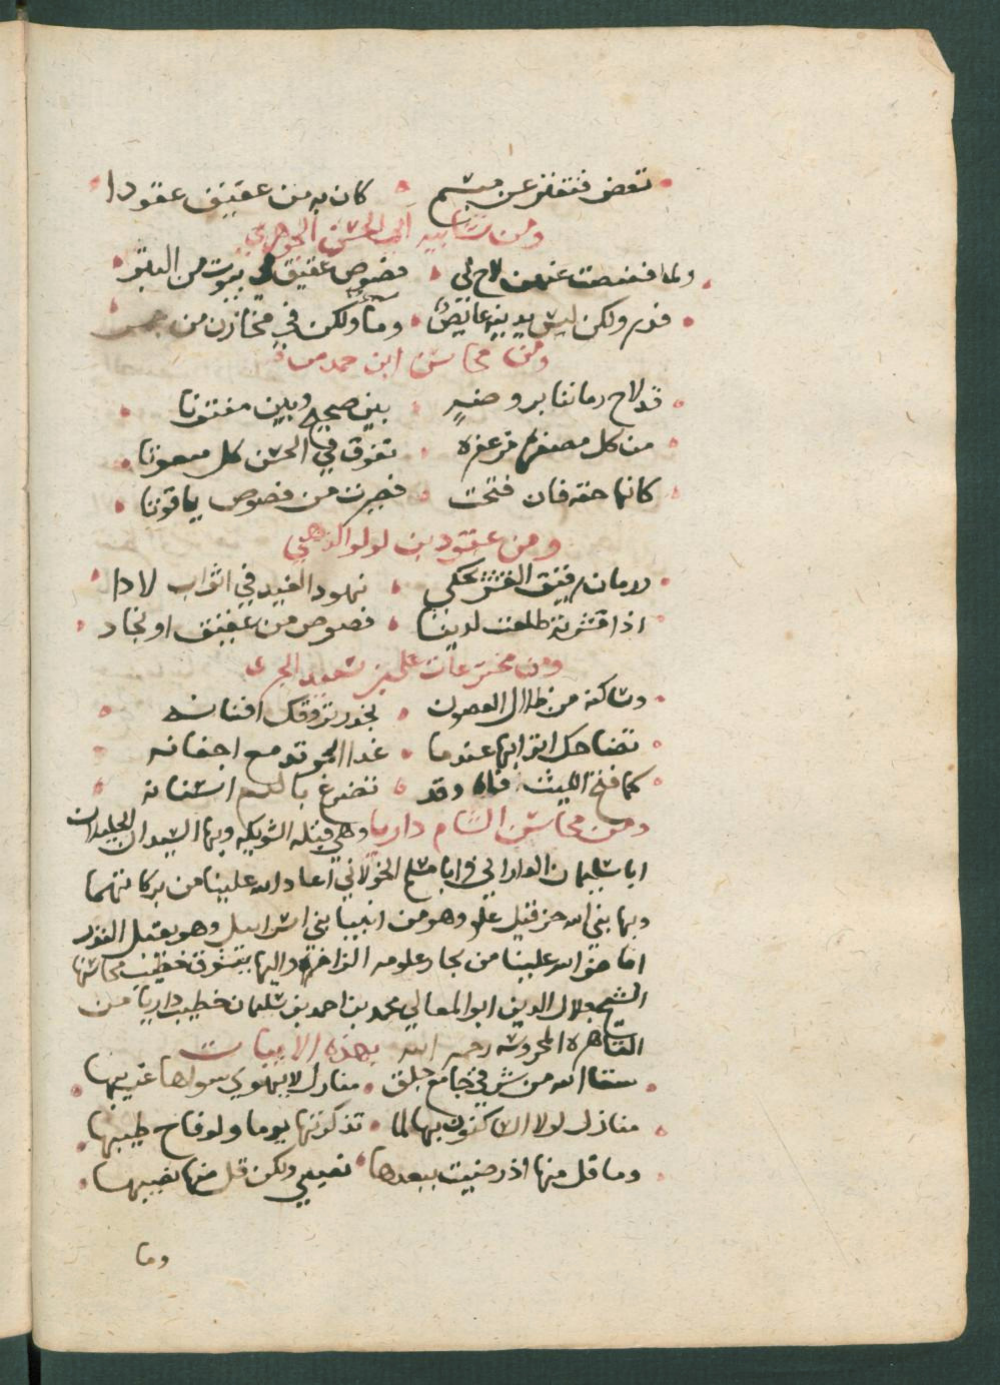 تعض فتفتر عن مبسم • كان به من عقيق عقودا
ومن تشابيه ابي الحسن الجوهري
ولما فضضت لاح لي • فصوص عقيق في بيوت من التبر
ولكن ليس يدنيه غايص • وما ولكن في مخازن من
ومن محاسن ابن حمديس
قد لاح رماننا بروضه • بين صحيح وبين مفتوتا
من كل مصفرة مزعفرة • تفوق في الحسن كل منعوتا
كانها حقة فان فتحت • فصرت من فصوص ياقوتا
ومن عقود بن لولو الذهبي
ورمان رقيق القشر يحكي • نهود الغيد في اثواب لادا
اذا قشرته طلعت لدينا • فصوص من عقيق او بجاد
ومن مخترعات علي بن سعيد
وساكنة من ظلال الغصون • بخدر تروقك افنانه
تضاحك اترابها عندما • غدا الجو تدمع اجفانه
كما فتح الليث فاه وقد • تضرغ بالدم اسنانه
ومن محاسن الشام داريا وهي قبلة الشويكه وبها السيدان الجليلان
ابا سليمان الداراني وابا مسلم الخولاني اعاد الله علينا من بركاتهما
وبها نبي الله حزقيل وهو من انبيا بني اسرائيل وهو
افاض الله علينا من بحار علومه الزاخرة واليها يتشوق خطيب محاسنها
الشيخ جلال الدين ابو المعالي محمد بن احمد بن سليمان خطيب داريا من
القاهرة المحروسه رحمه الله بهذه الابيات
سقا الله من شرقي جامع جلق • منازل لا يهوي سواها غريبها
منازل لولا الساكنون بها لما • تذكرتها يوما ولو فاح طيبها
وما قل منها اذ رضيت ببعدها • نصيبي ولكن قل منها نصيبها
وما